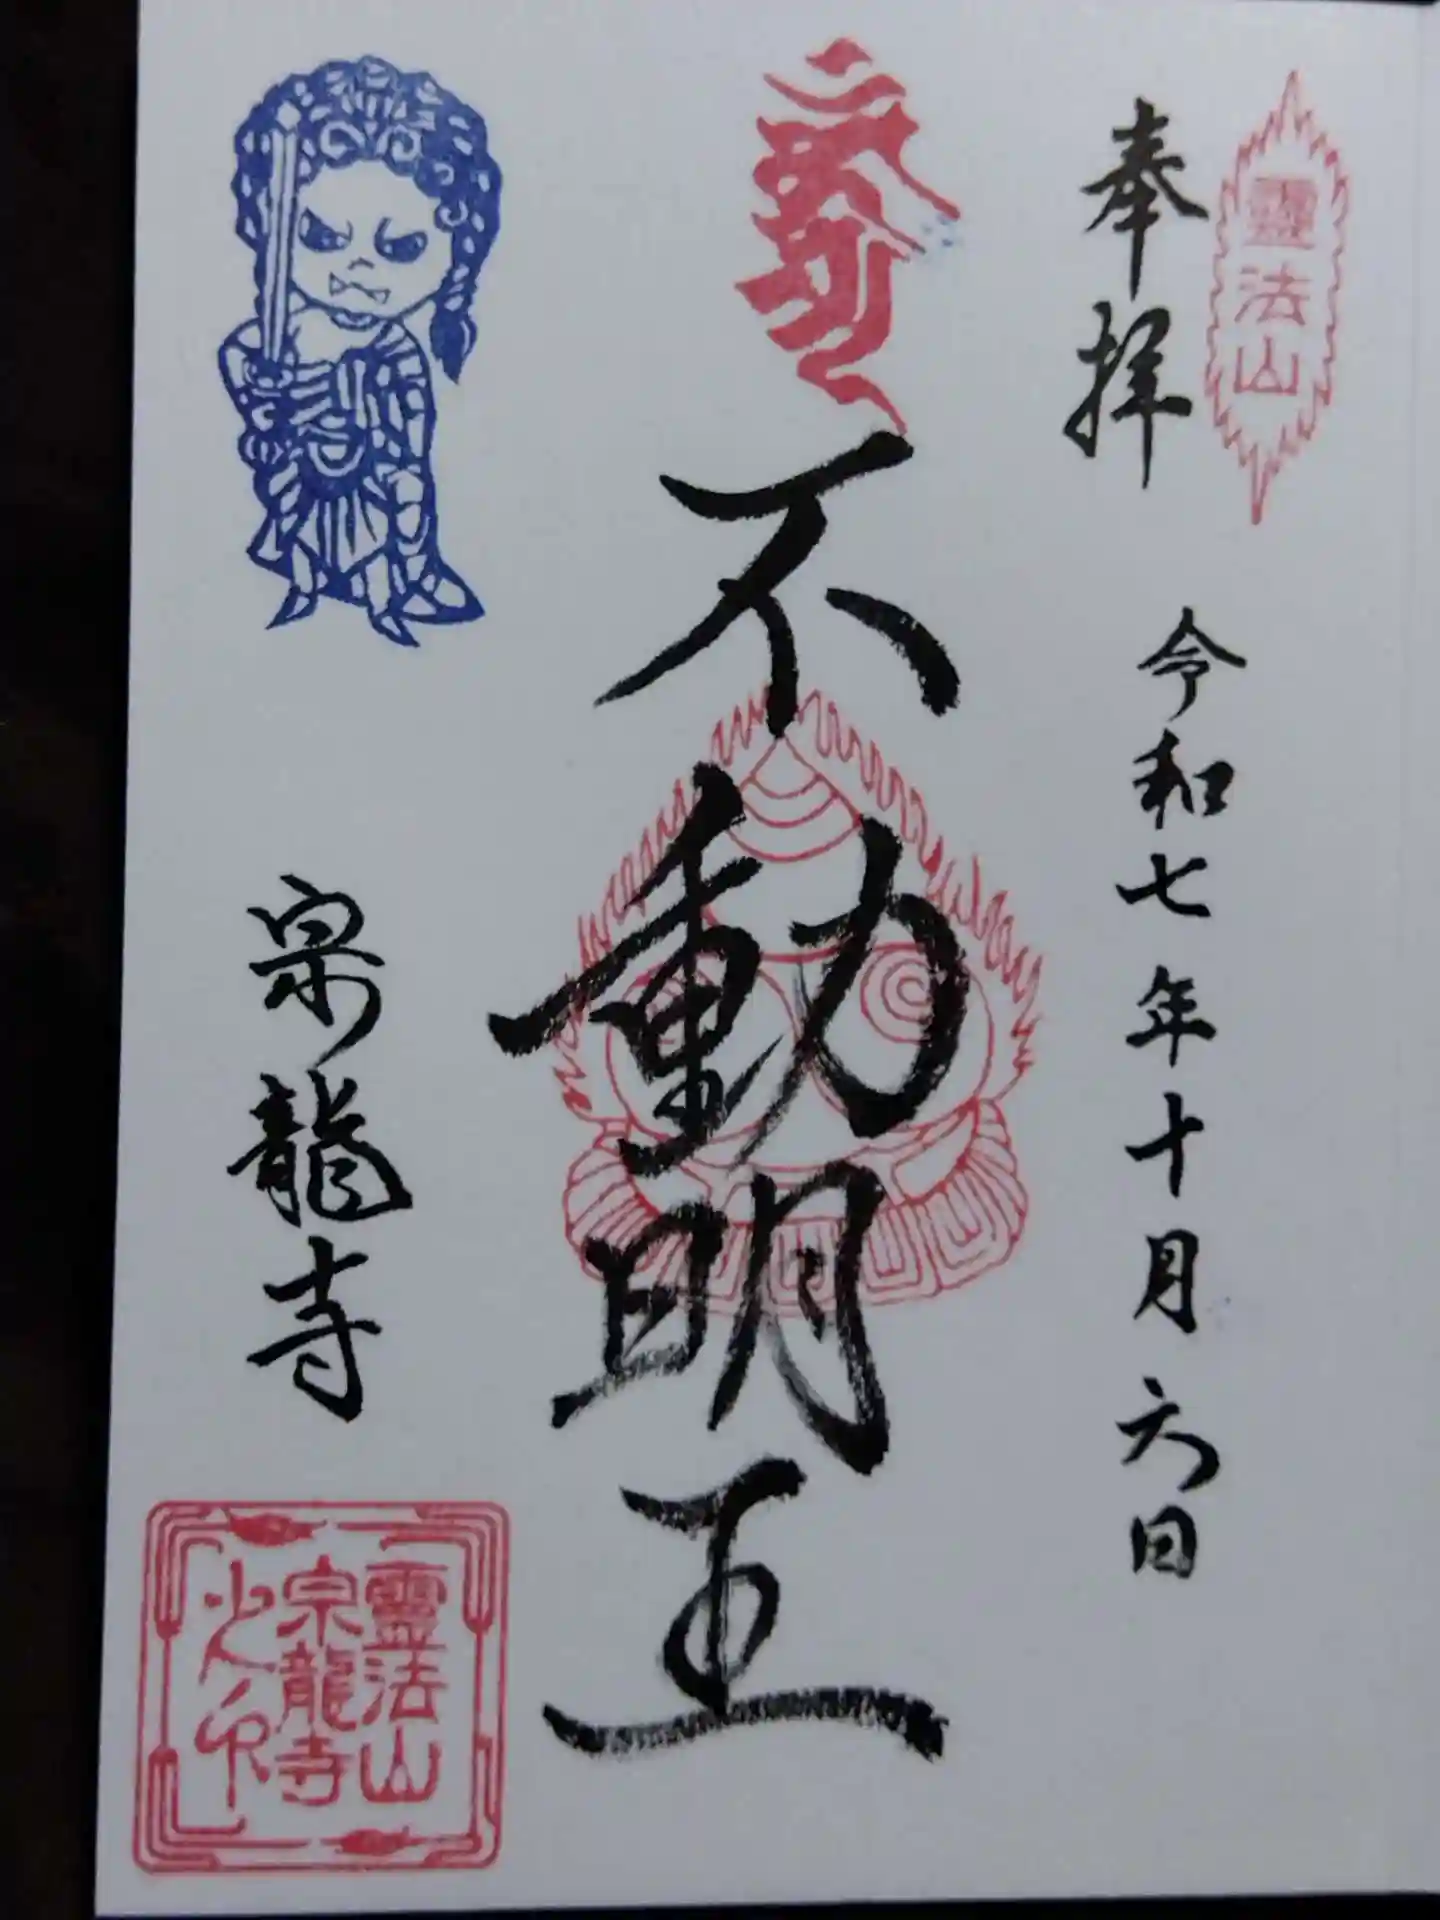 靈法山
奉拝
令和七年十月六日
不動明王
宗龍寺
靈法山
宗龍寺